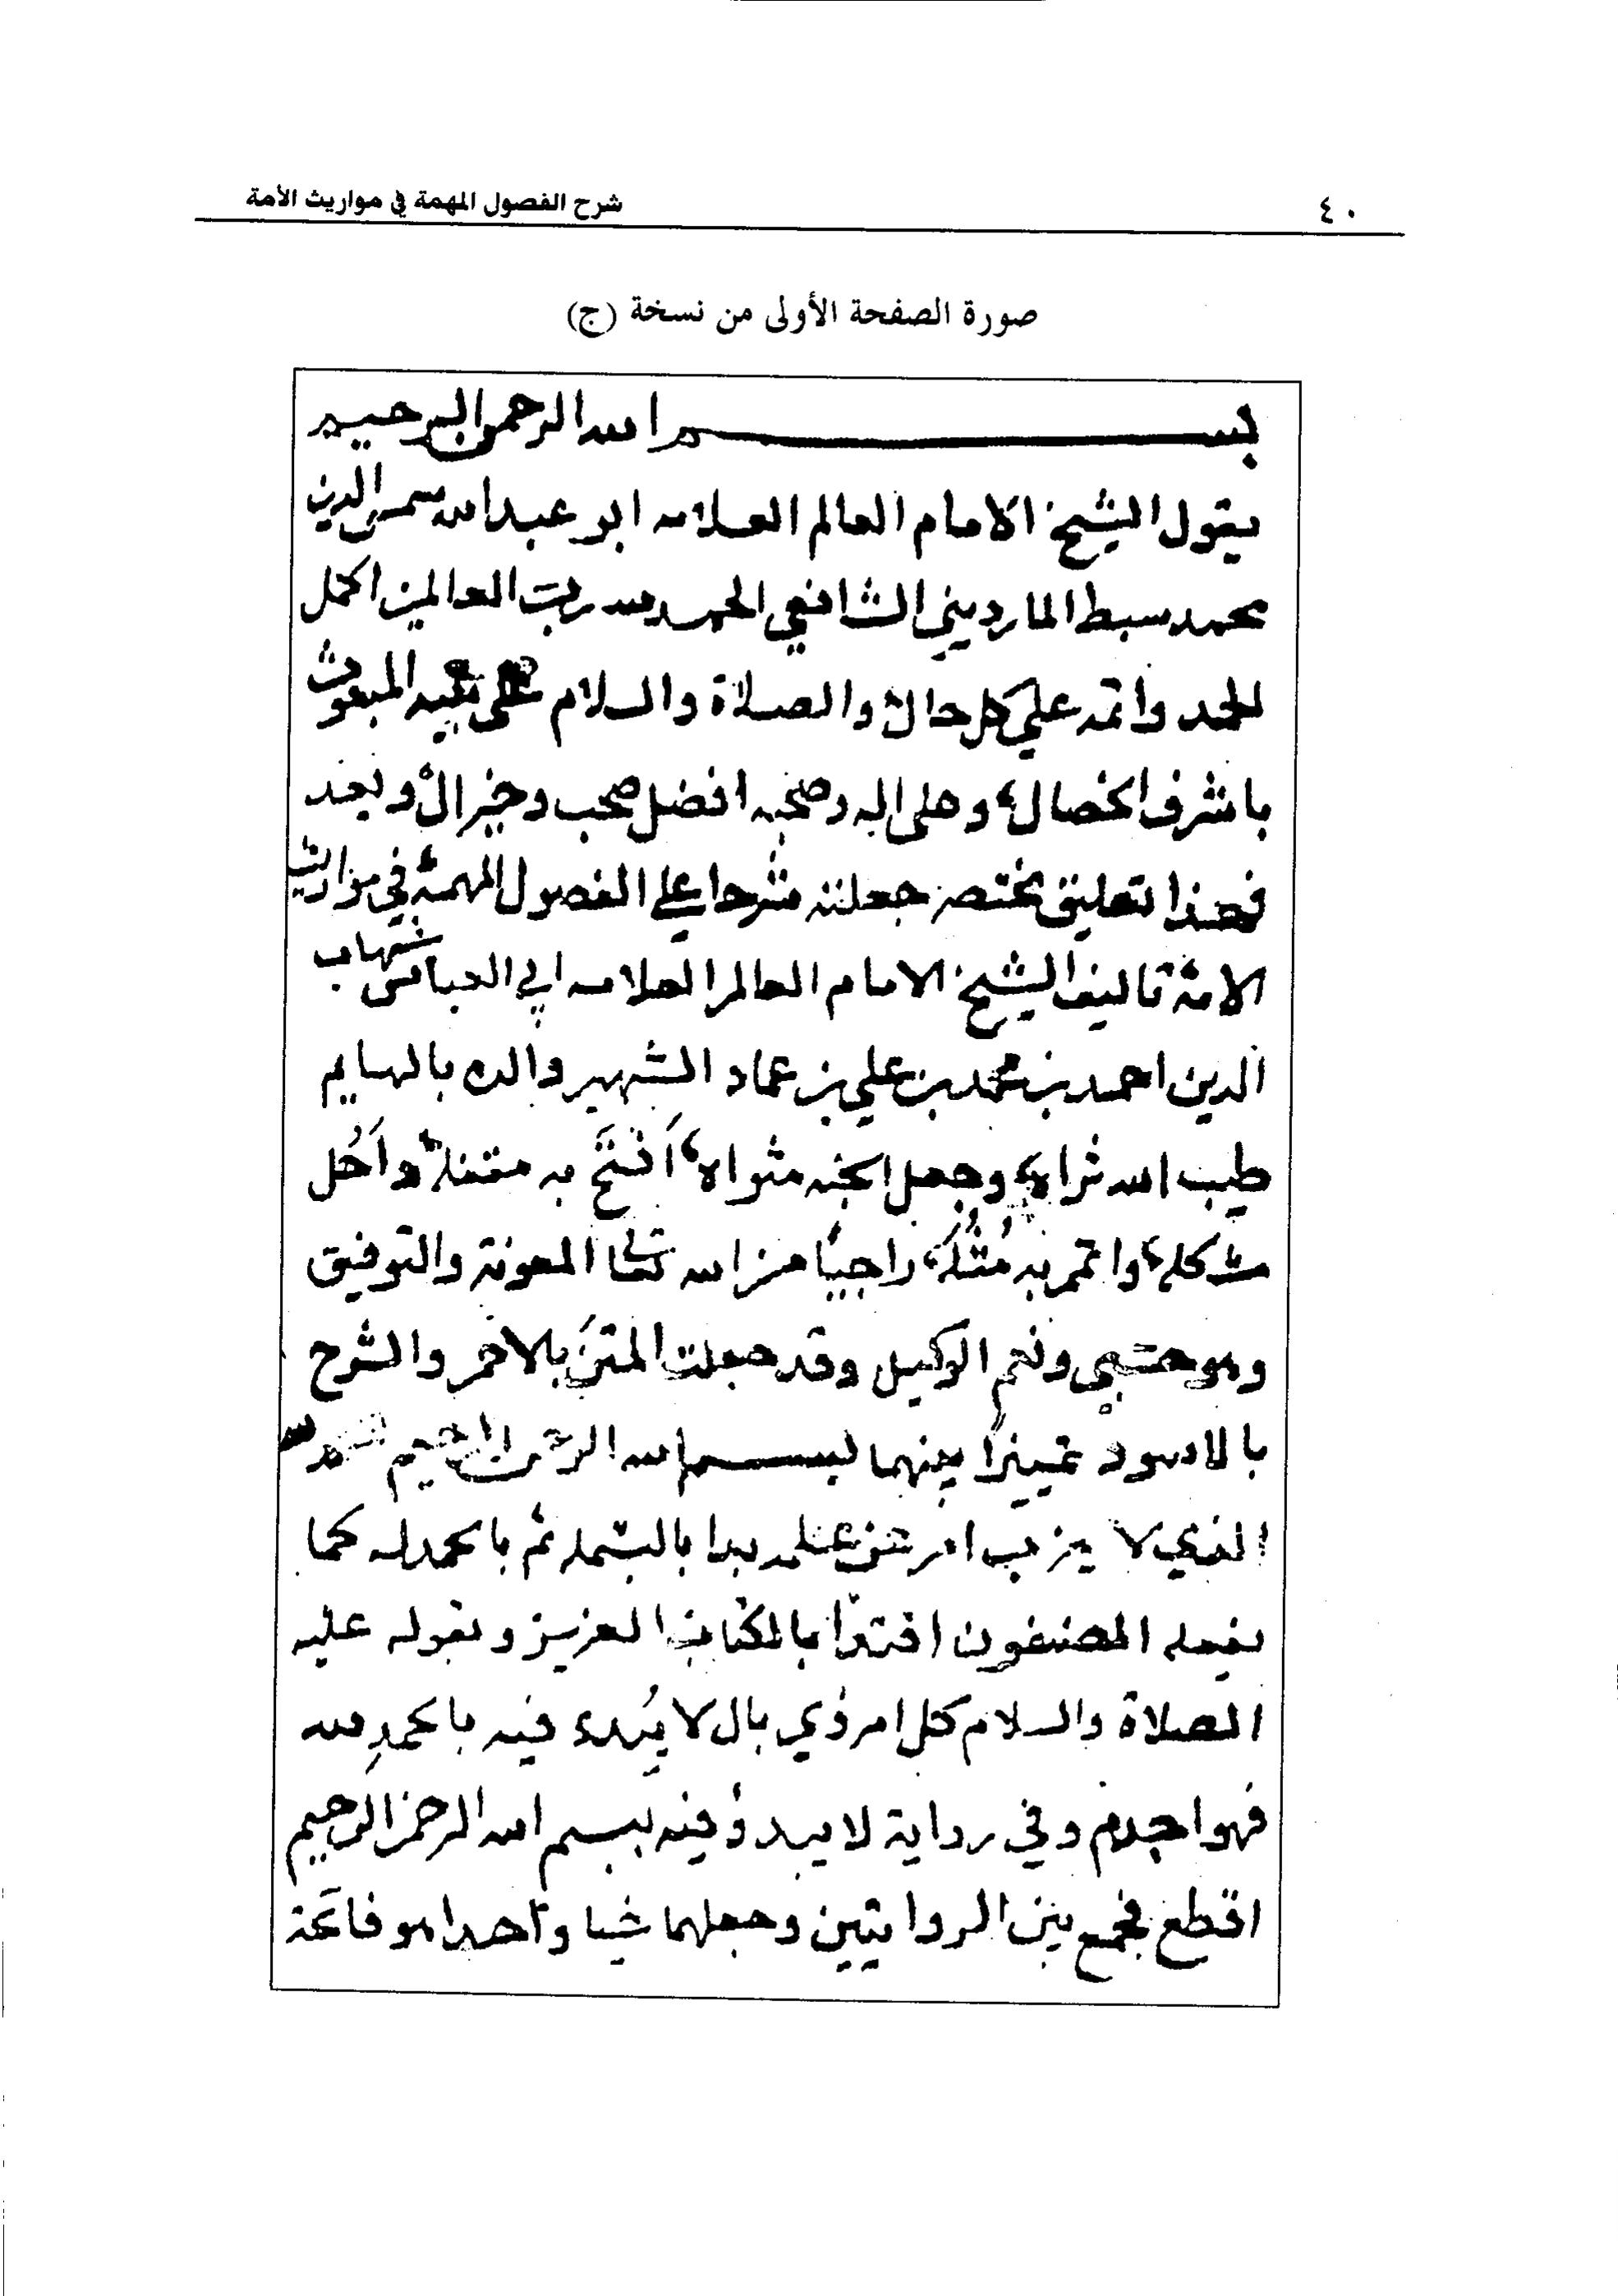 ٤٠
شرح الفصول المهمة في مواريث الأمة
صورة الصفحة الأولى من نسخة (ج)
بسم الله الرحمن الرحيم
يقول الشيخ الامام العالم العلامه ابو عبدالله شمس الدين
محمد سبط المارديني الشافعي الحمد لله رب العالمين اكمل
الحمد واتمه علي كل حال والصلاة والسلام على نبيه المبعوث
باشرف الخصال وعلى اله وصحبه افضل صحب وخير ال وبعد
فهذا تعليق مختصر جعلته شرحا علي الفصول المهمة في مواريث
الامة تاليف الشيخ الامام العالم العلامه ابي العباس شهاب
الدين احمد بن محمد بن علي بن عماد الشهير والده بالهايم
طيب الله ثراه وجعل الجنه مثواه أفتح به مقفله وأحُل
مشكله واتمم به مُثُله راجيًا من الله تعالى المعونة والتوفيق
وهو حسبي ونعم الوكيل وقد جعلت المتن بالاحمر والشرح
بالاسود تمييزًا بينهما بسم الله الرحمن الرحيم الحمد لله
الذي لا يعزب امر عن علمه بدا بالبسمله ثم بالحمدله كما
يفعله المصنفون اقتدآ بالكتاب العزيز وبقوله عليه
الصلاة والسلام كل امر ذي بال لا يُبدء فيه بالحمد لله
فهو اجدم وفي رواية لا يبدؤ فيه ببسم الله الرحمن الرحيم
اقطع فجمع بين الروايتين وجعلهما شيا واحدا هو فاتحة